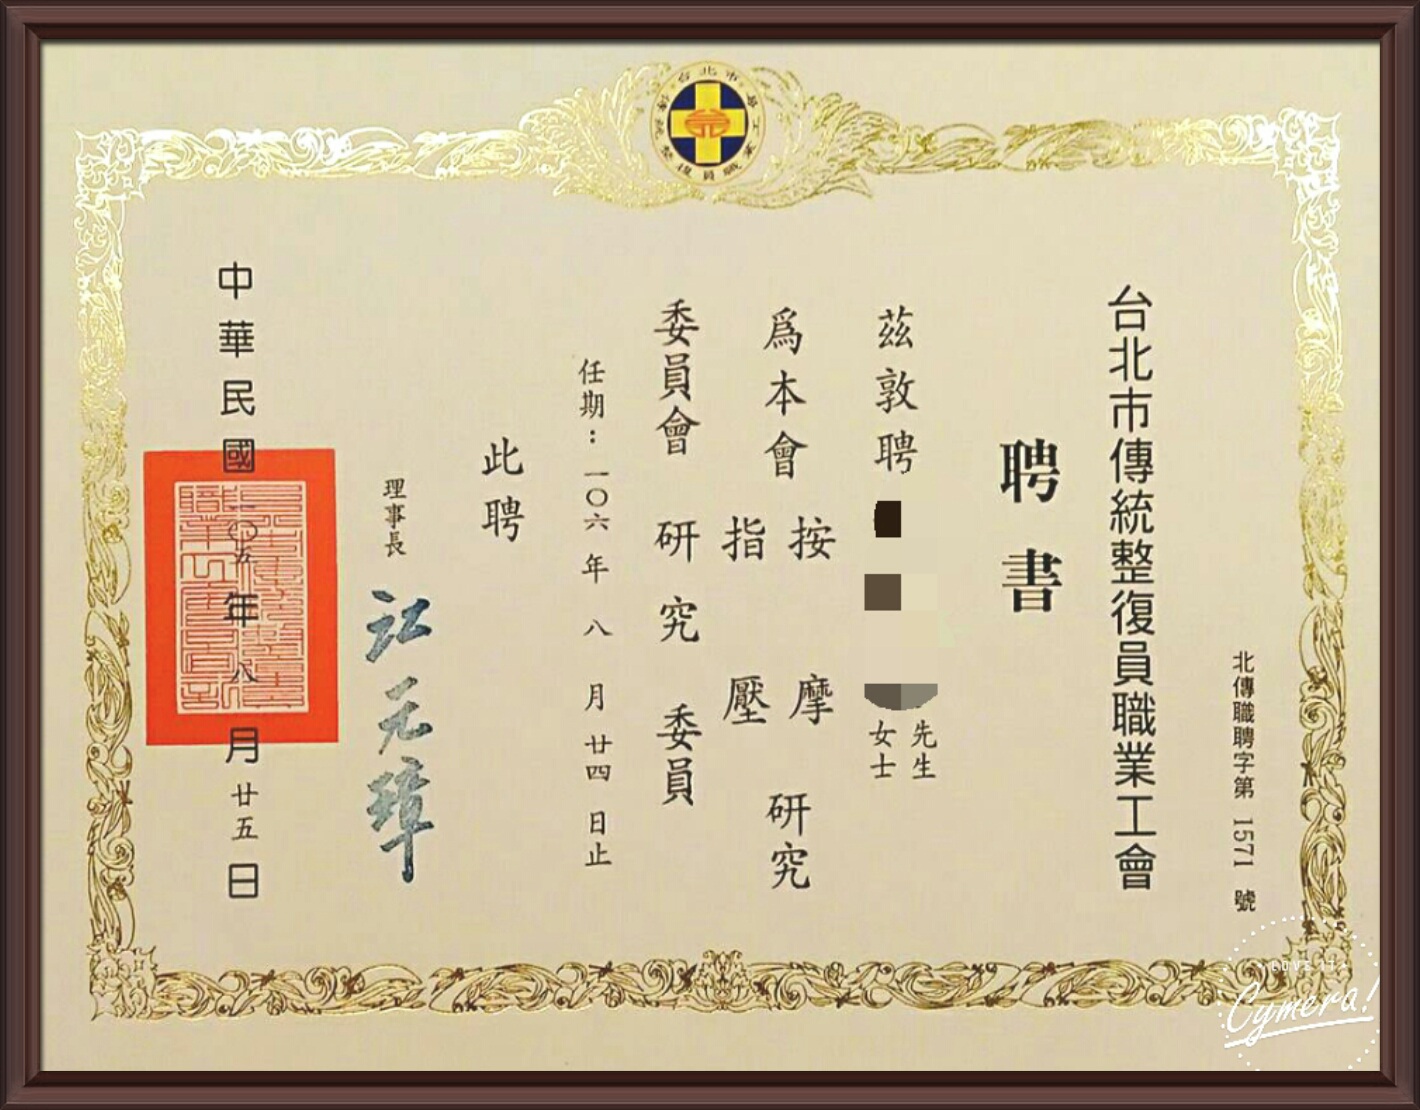 台北市傳統整復員職業工會
北傳職聘字第 1571 號
台北市傳統整復員職業工會
聘書
茲敦聘
先生
女士
為本會 按摩 指壓 研究
委員會 研究 委員
任期：一〇六年八月廿四日止
此聘
理事長 江元璋
中華民國一〇五年八月廿五日
LOVE IT
Cymera!